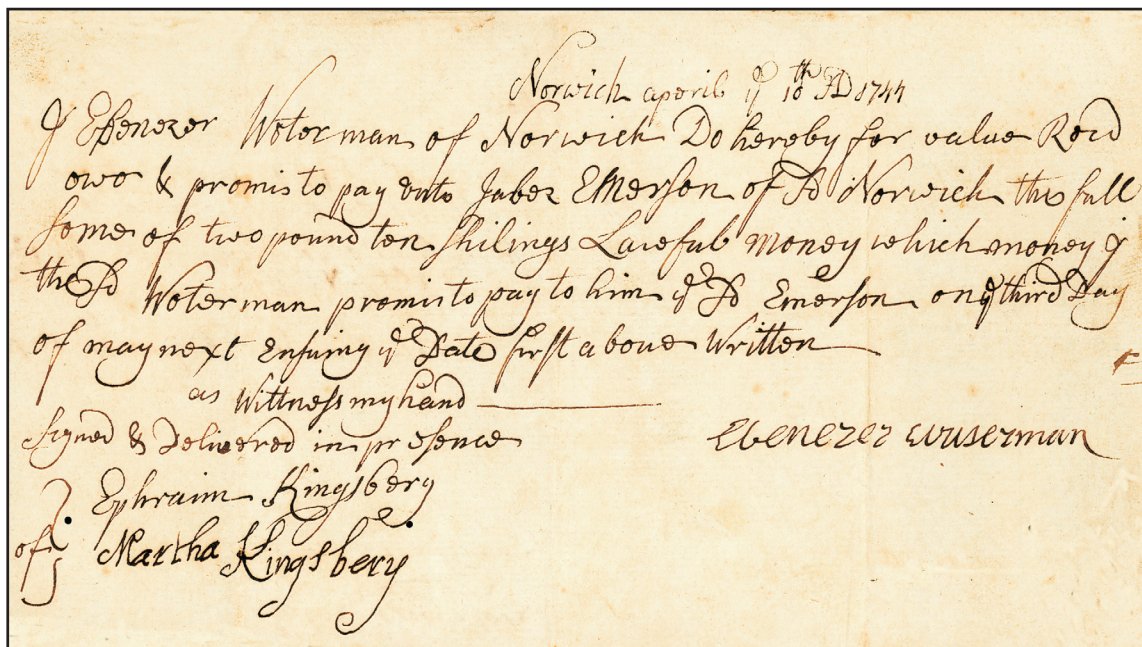 Norwich aporil ye 10th AD 1744
I Ebenezer Woterman of Norwich Do hereby for value Recd
owe & promis to pay unto Jabez Emerson of sd Norwich the full
some of two pound ten shilings Laweful money which money I
the sd Woterman promis to pay to him ye sd Emerson on ye third Day
of may next Ensuing ye Date first above Written
as Wittness my hand
signed & Delivered in presence
Ebenezer
of Ephraim Kingsbery
Martha Kingsbery